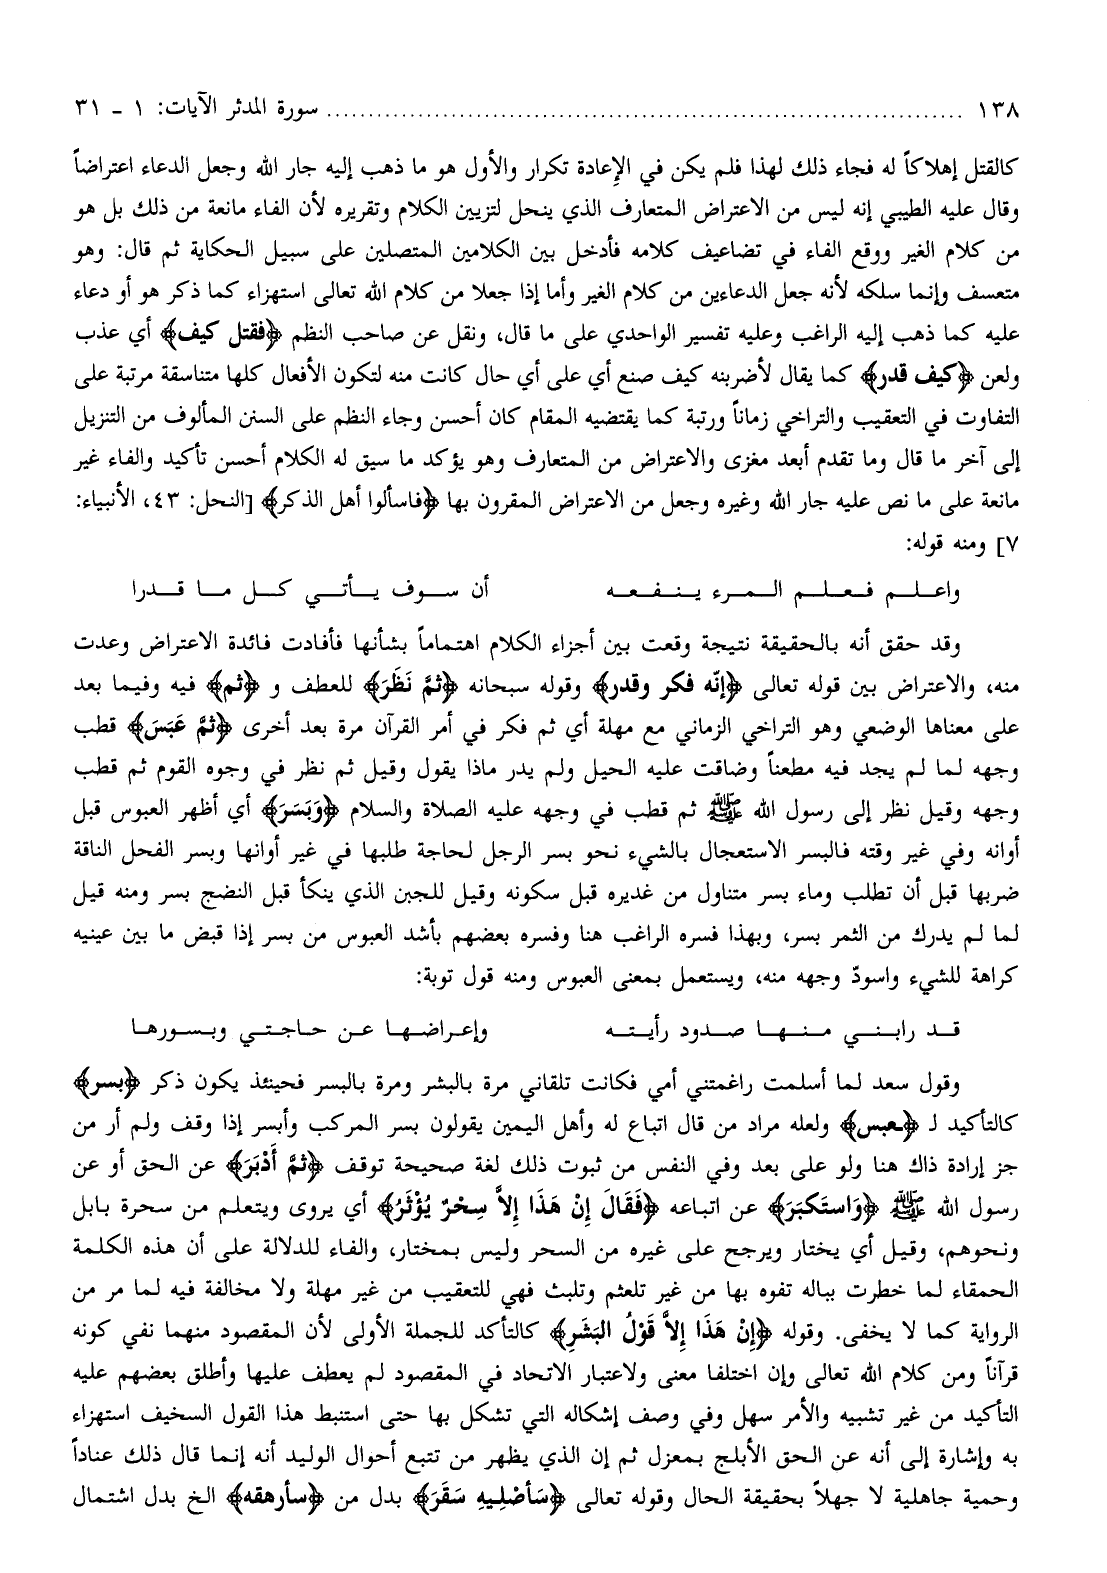 ١٣٨ ........................................................................ سورة المدثر الآيات: ١ ـ ٣١
كالقتل إهلاكاً له فجاء ذلك لهذا فلم يكن في الإعادة تكرار والأول هو ما ذهب إليه جار الله وجعل الدعاء اعتراضاً
وقال عليه الطيبي إنه ليس من الاعتراض المتعارف الذي ينحل لتزيين الكلام وتقريره لأن الفاء مانعة من ذلك بل هو
من كلام الغير ووقع الفاء في تضاعيف كلامه فأدخل بين الكلامين المتصلين على سبيل الحكاية ثم قال: وهو
متعسف وإنما سلكه لأنه جعل الدعاءين من كلام الغير وأما إذا جعلا من كلام الله تعالى استهزاء كما ذكر هو أو دعاء
عليه كما ذهب إليه الراغب وعليه تفسير الواحدي على ما قال، ونقل عن صاحب النظم ﴿فقتل كيف﴾ أي عذب
ولعن ﴿كيف قدر﴾ كما يقال لأضربنه كيف صنع أي على أي حال كانت منه لتكون الأفعال كلها متناسقة مرتبة على
التفاوت في التعقيب والتراخي زماناً ورتبة كما يقتضيه المقام كان أحسن وجاء النظم على السنن المألوف من التنزيل
إلى آخر ما قال وما تقدم أبعد مغزى والاعتراض من المتعارف وهو يؤكد ما سيق له الكلام أحسن تأكيد والفاء غير
مانعة على ما نص عليه جار الله وغيره وجعل من الاعتراض المقرون بها ﴿فاسألوا أهل الذكر﴾ [النحل: ٤٣، الأنبياء:
٧] ومنه قوله:
واعلم فعلم المرء ينفعه أن سوف يأتي كل ما قدرا
وقد حقق أنه بالحقيقة نتيجة وقعت بين أجزاء الكلام اهتماماً بشأنها فأفادت فائدة الاعتراض وعدت
منه، والاعتراض بين قوله تعالى ﴿إنّه فكر وقدر﴾ وقوله سبحانه ﴿ثُمَّ نَظَرَ﴾ للعطف و ﴿ثم﴾ فيه وفيما بعد
على معناها الوضعي وهو التراخي الزماني مع مهلة أي ثم فكر في أمر القرآن مرة بعد أخرى ﴿ثمَّ عَبَسَ﴾ قطب
وجهه لما لم يجد فيه مطعناً وضاقت عليه الحيل ولم يدر ماذا يقول وقيل ثم نظر في وجوه القوم ثم قطب
وجهه وقيل نظر إلى رسول الله ﷺ ثم قطب في وجهه عليه الصلاة والسلام ﴿وَبَسَرَ﴾ أي أظهر العبوس قبل
أوانه وفي غير وقته فالبسر الاستعجال بالشيء نحو بسر الرجل لحاجة طلبها في غير أوانها وبسر الفحل الناقة
ضربها قبل أن تطلب وماء بسر متناول من غديره قبل سكونه وقيل للجبن الذي ينكأ قبل النضج بسر ومنه قيل
لما لم يدرك من الثمر بسر، وبهذا فسره الراغب هنا وفسره بعضهم بأشد العبوس من بسر إذا قبض ما بين عينيه
كراهة للشيء واسودّ وجهه منه، ويستعمل بمعنى العبوس ومنه قول توبة:
قد رابني منها صدود رأيته وإعراضها عن حاجتي وبسورها
وقول سعد لما أسلمت راغمتني أمي فكانت تلقاني مرة بالبشر ومرة بالبسر فحينئذ يكون ذكر ﴿بسر﴾
كالتأكيد لـ ﴿عبس﴾ ولعله مراد من قال اتباع له وأهل اليمين يقولون بسر المركب وأبسر إذا وقف ولم أر من
جز إرادة ذاك هنا ولو على بعد وفي النفس من ثبوت ذلك لغة صحيحة توقف ﴿ثمَّ أَدْبَرَ﴾ عن الحق أو عن
رسول الله ﷺ ﴿وَاستَكبَرَ﴾ عن اتباعه ﴿فَقَالَ إنْ هَذَا إلاَّ سِحْرٌ يُؤْثَرُ﴾ أي يروى ويتعلم من سحرة بابل
ونحوهم، وقيل أي يختار ويرجح على غيره من السحر وليس بمختار، والفاء للدلالة على أن هذه الكلمة
الحمقاء لما خطرت بباله تفوه بها من غير تلعثم وتلبث فهي للتعقيب من غير مهلة ولا مخالفة فيه لما مر من
الرواية كما لا يخفى. وقوله ﴿إنْ هَذَا إلاَّ قَوْلُ البَشَرِ﴾ كالتأكد للجملة الأولى لأن المقصود منهما نفي كونه
قرآناً ومن كلام الله تعالى وإن اختلفا معنى ولاعتبار الاتحاد في المقصود لم يعطف عليها وأطلق بعضهم عليه
التأكيد من غير تشبيه والأمر سهل وفي وصف إشكاله التي تشكل بها حتى استنبط هذا القول السخيف استهزاء
به وإشارة إلى أنه عن الحق الأبلج بمعزل ثم إن الذي يظهر من تتبع أحوال الوليد أنه إنما قال ذلك عناداً
وحمية جاهلية لا جهلاً بحقيقة الحال وقوله تعالى ﴿سَأصْلِيهِ سَقَرَ﴾ بدل من ﴿سأرهقه﴾ الخ بدل اشتمال